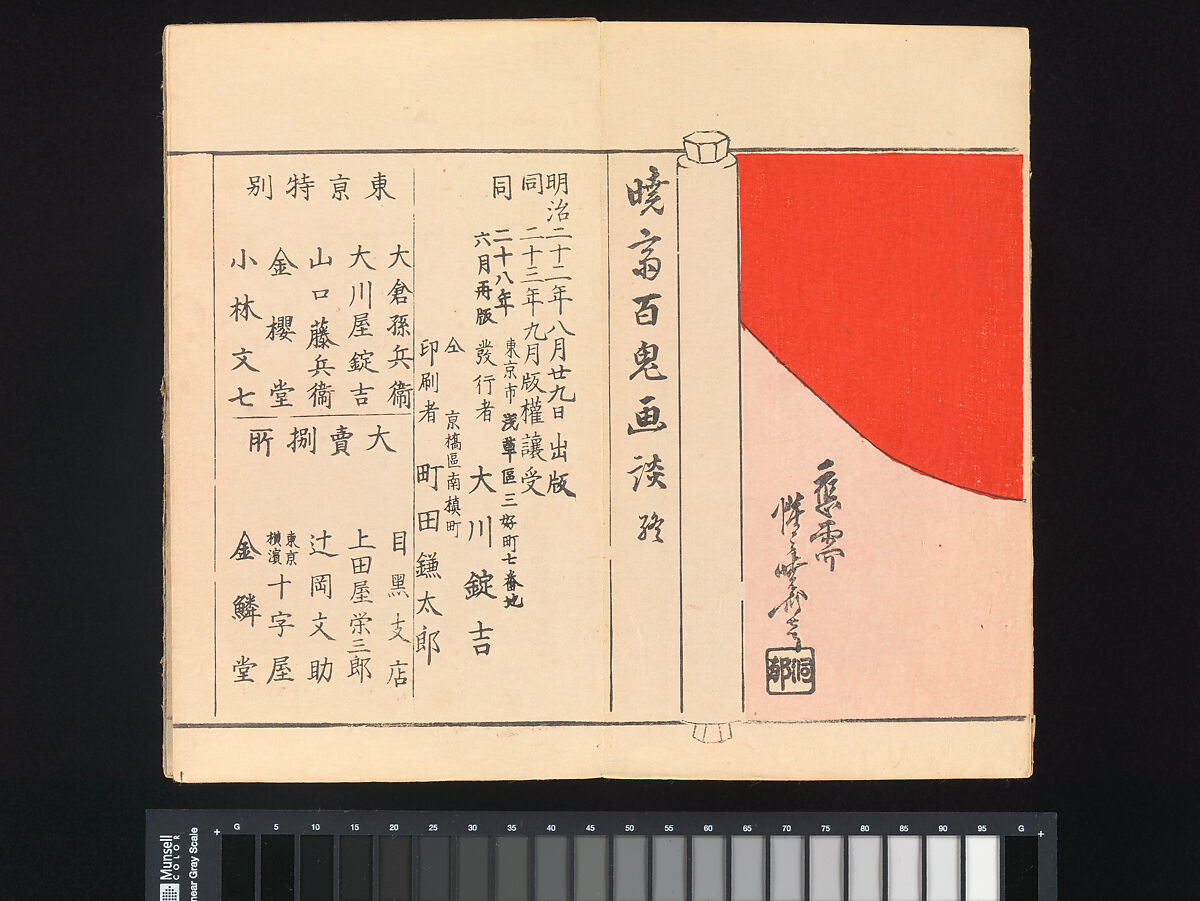 應需
惺々暁斎
洞郁
暁斎百鬼画談終
明治二十二年八月廿九日出版
同二十三年九月版權讓受
同二十八年六月再版
東京市浅草區三好町七番地
發行者 大川錠吉
仝 京橋區南槙町
印刷者 町田鎌太郎
東京特別
大倉孫兵衞
大川屋錠吉
山口藤兵衞
金櫻堂
小林文七
大賣捌所
目黒支店
上田屋栄三郎
辻岡文助
東京横濱 十字屋
金鱗堂
Munsell COLOR
near Gray Scale
G 5 10 15 20 25 30 35 40 45 50 55 60 65 70 75 80 85 90 95 G